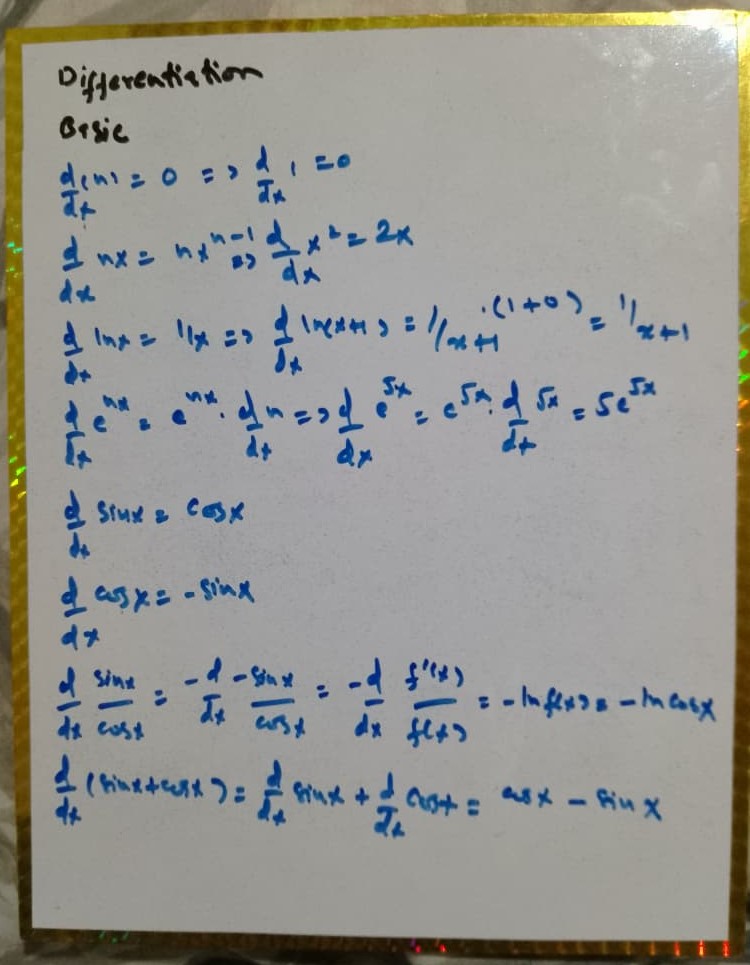 Differentiation
Basic
d/dx (n) = 0 => d/dx 1 = 0
d/dx nx = nx^n-1 => d/dx x^2 = 2x
d/dx lnx = 1/x => d/dx ln(x+1) = 1/x+1 .(1+0) = 1/x+1
d/dx e^nx = e^nx . d/dx n => d/dx e^5x = e^5x . d/dx 5x = 5e^5x
d/dx sinx = cosx
d/dx cosx = -sinx
d/dx sinx/cosx = -d/dx -sinx/cosx = -d/dx f'(x)/f(x) = -lnf(x) = -lncosx
d/dx (sinx+cosx) = d/dx sinx + d/dx cosx = cosx - sinx